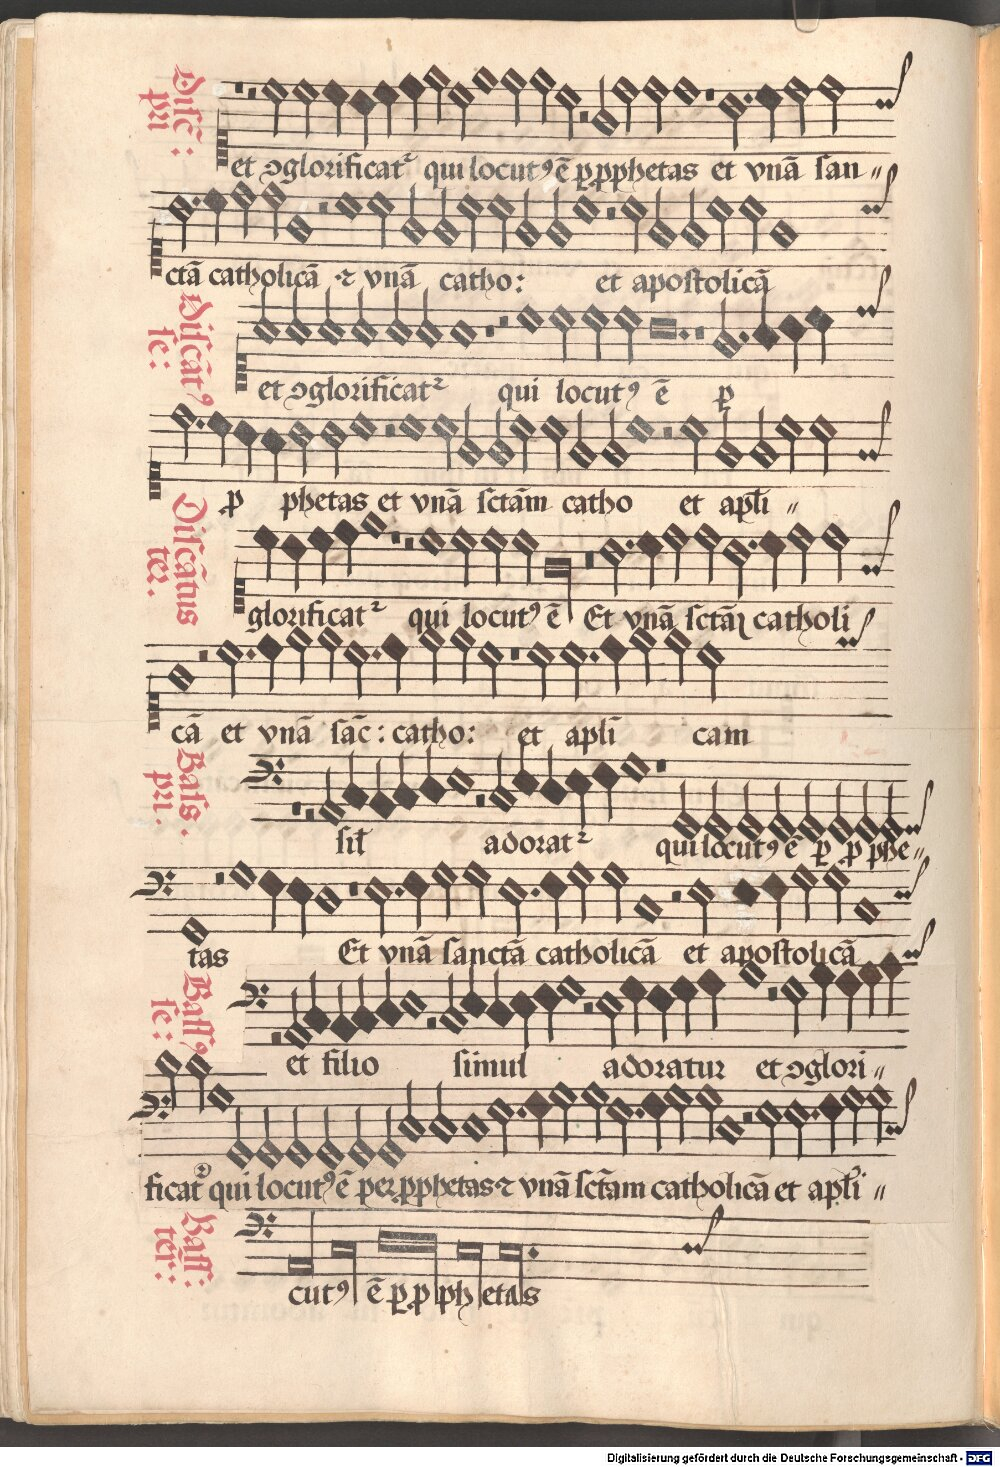 Disc: pri
et ꝯglorificatꝛ qui locutꝰ ē ꝓ ꝓphetas et vnā san〃
ctā catholicā ⁊ vnā catho: et apostolicā
Discātꝰ se:
et ꝯglorificatꝛ qui locutꝰ ē ꝓ
ꝓ phetas et vnā sctām catho et apl̄i〃
Discātus ter.
glorificatꝛ qui locutꝰ ē Et vnā sctāꝫ catholi
cā et vnā sāc: catho: et apl̄i cam
Bass. pri.
sil̄ adoratꝛ qui locutꝰ ē ꝑ ꝓphe〃
tas Et vnā sanctā catholicā et apostolicā
Bassꝰ se:
et filio simul adoratur et ꝯglori〃
ficatꝛ qui locutꝰ ē per ꝓphetas ⁊ vnā sctām catholicā et apl̄i〃
Bass: ter:
cutꝰ ē ꝑ ꝓphetas
Digitalisierung gefördert durch die Deutsche Forschungsgemeinschaft - DFG